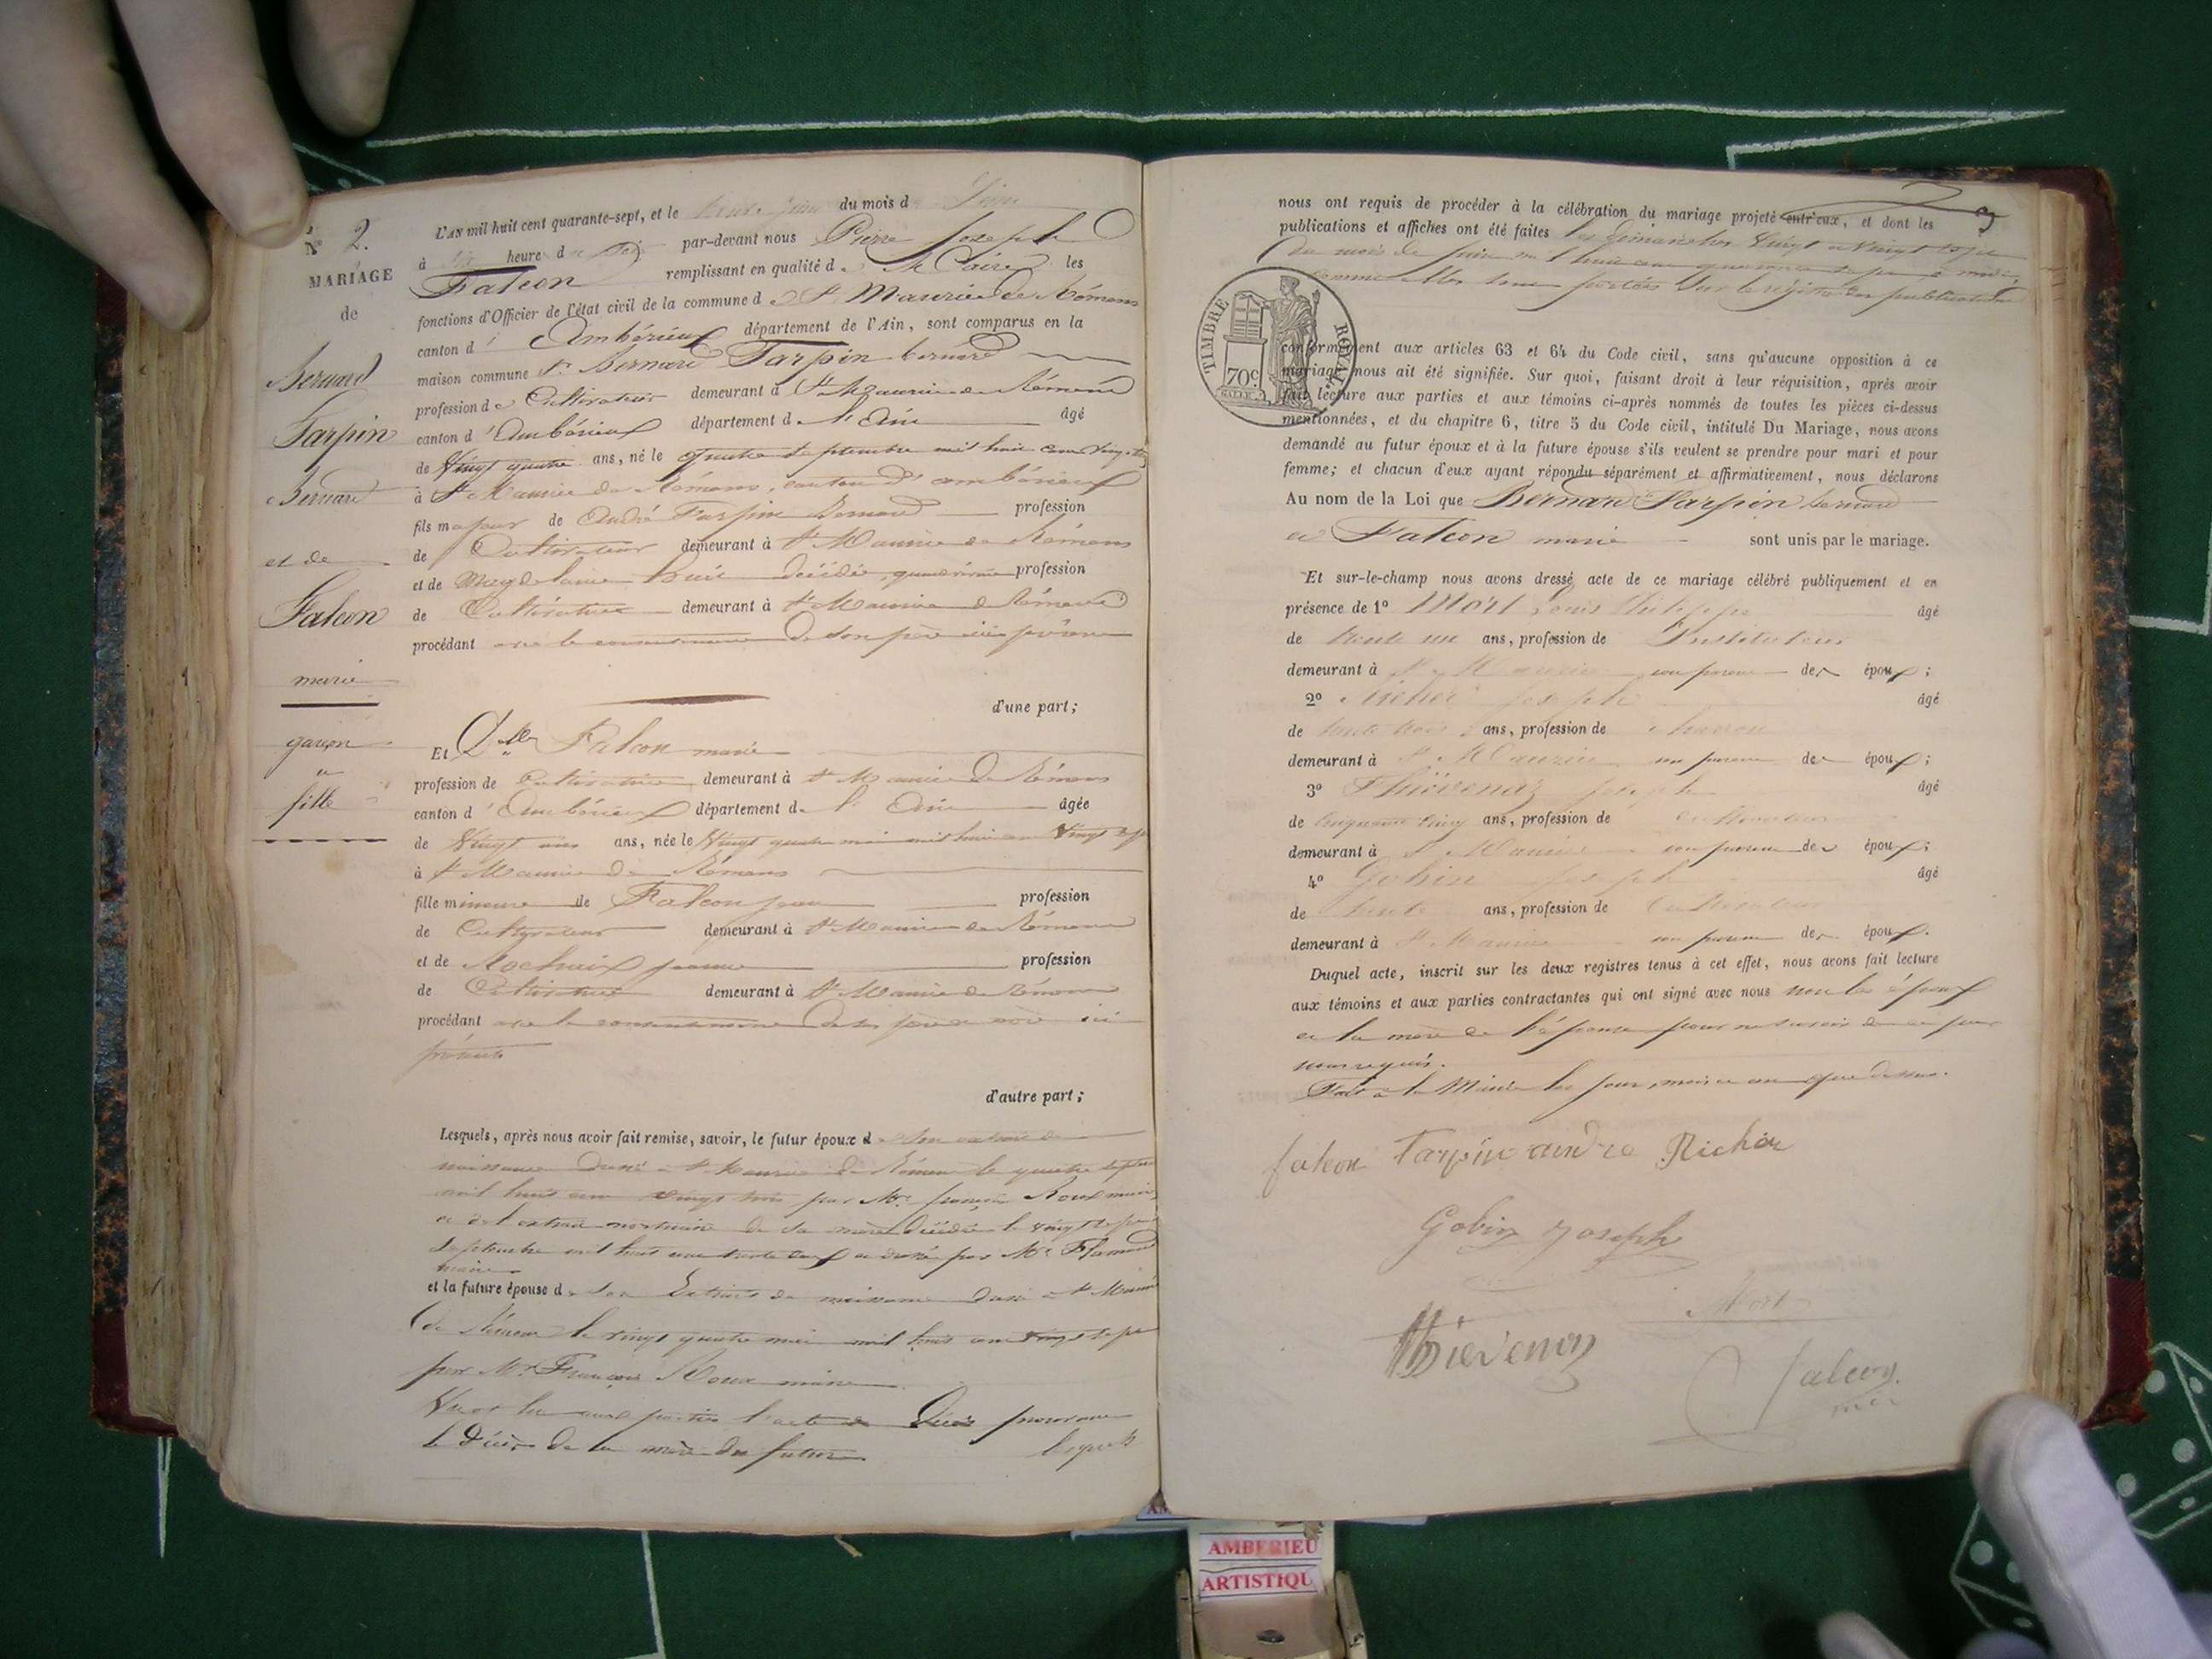 N° 2.
MARIAGE
de
Bernard
Tarpin
Bernard
et de
Falcon
marie
garçon
fille
L'AN mil huit cent quarante-sept, et le du mois d
à heure d par-devant nous Pierre Joseph
Falcon remplissant en qualité de Maire les
fonctions d'Officier de l'état civil de la commune de St Maurice de Rémens
canton d'Ambérieux département de l'Ain, sont comparus en la
maison commune Sr Bernard Tarpin bernard
profession de Cultivateur demeurant à St Maurice de Rémens
canton d'Ambérieux département de l'Ain âgé
de Vingt quatre ans, né le quatre septembre mil huit cent vingt trois
à St Maurice de Rémens, canton d'ambérieux
fils majeur de André Tarpin Bernard profession
de Cultivateur demeurant à St Maurice de Rémens
et de Magdelaine décédée, profession
de Cultivatrice demeurant à St Maurice de Rémens
procédant avec le consentement de son père ici présent
d'une part;
Et Dlle Falcon marie
profession de Cultivatrice demeurant à St Maurice de Rémens
canton d'Ambérieux département de l'Ain âgée
de Vingt ans ans, née le Vingt quatre mai mil huit cent Vingt sept
à St Maurice de Rémens
fille mineure de Falcon jean profession
de Cultivateur demeurant à St Maurice de Rémens
et de Rochaix jeanne profession
de Cultivatrice demeurant à St Maurice de Rémens
procédant avec le consentement de ses père et mère ici
présents
d'autre part;
Lesquels, après nous avoir fait remise, savoir, le futur époux de son extrait de
naissance daté à St Maurice de Rémens le quatre septembre
mil huit cent vingt trois par Mr françois Roux maire
et de l'extrait mortuaire de sa mère décédée le vingt sept
Septembre mil huit cent trente et daté par Mr Flamand
maire
et la future épouse de son Extrait de naissance daté à St Maurice
de Rémens le vingt quatre mai mil huit cent vingt sept
par Mr François Roux maire
Vu et lu aux parties l'acte de Décès prouvant
le Décès de la mère du futur lesquels
3
nous ont requis de procéder à la célébration du mariage projeté entr'eux, et dont les
publications et affiches ont été faites les dimanches Vingt et Vingt sept
du mois de juin mil huit cent quarante sept à midi,
comme elles sont portées sur le registre des publications
TIMBRE ROYAL
70c
conformément aux articles 63 et 64 du Code civil, sans qu'aucune opposition à ce
mariage nous ait été signifiée. Sur quoi, faisant droit à leur réquisition, après avoir
fait lecture aux parties et aux témoins ci-après nommés de toutes les pièces ci-dessus
mentionnées, et du chapitre 6, titre 5 du Code civil, intitulé Du Mariage, nous avons
demandé au futur époux et à la future épouse s'ils veulent se prendre pour mari et pour
femme; et chacun d'eux ayant répondu séparément et affirmativement, nous déclarons
Au nom de la Loi que Bernard Tarpin bernard
et Falcon marie sont unis par le mariage.
Et sur-le-champ nous avons dressé acte de ce mariage célébré publiquement et en
présence de 1° Mort Louis Philippe âgé
de trente un ans, profession de Instituteur
demeurant à St Maurice non parent des époux;
2° Richer joseph âgé
de trente trois ans, profession de charron
demeurant à St Maurice non parent des époux;
3° Thiévenaz joseph âgé
de Cinquante Cinq ans, profession de Cultivateur
demeurant à St Maurice non parent des époux;
4° Gobin joseph âgé
de trente ans, profession de Cultivateur
demeurant à St Maurice non parent des époux.
Duquel acte, inscrit sur les deux registres tenus à cet effet, nous avons fait lecture
aux témoins et aux parties contractantes qui ont signé avec nous non les époux
et la mère de l'épouse pour ne savoir de ce par
nous requis.
Fait à la Mairie les jour, mois et an que dessus.
falcon Tarpin andre Richer
Gobin Joseph
Mort
Thievenaz
falcon
AMBERIEU
ARTISTIQU